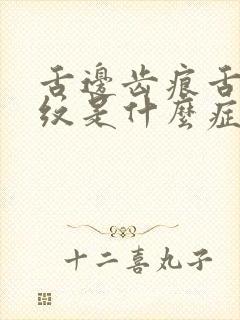 舌邊齿痕舌
纹是什麼症
十二喜丸子